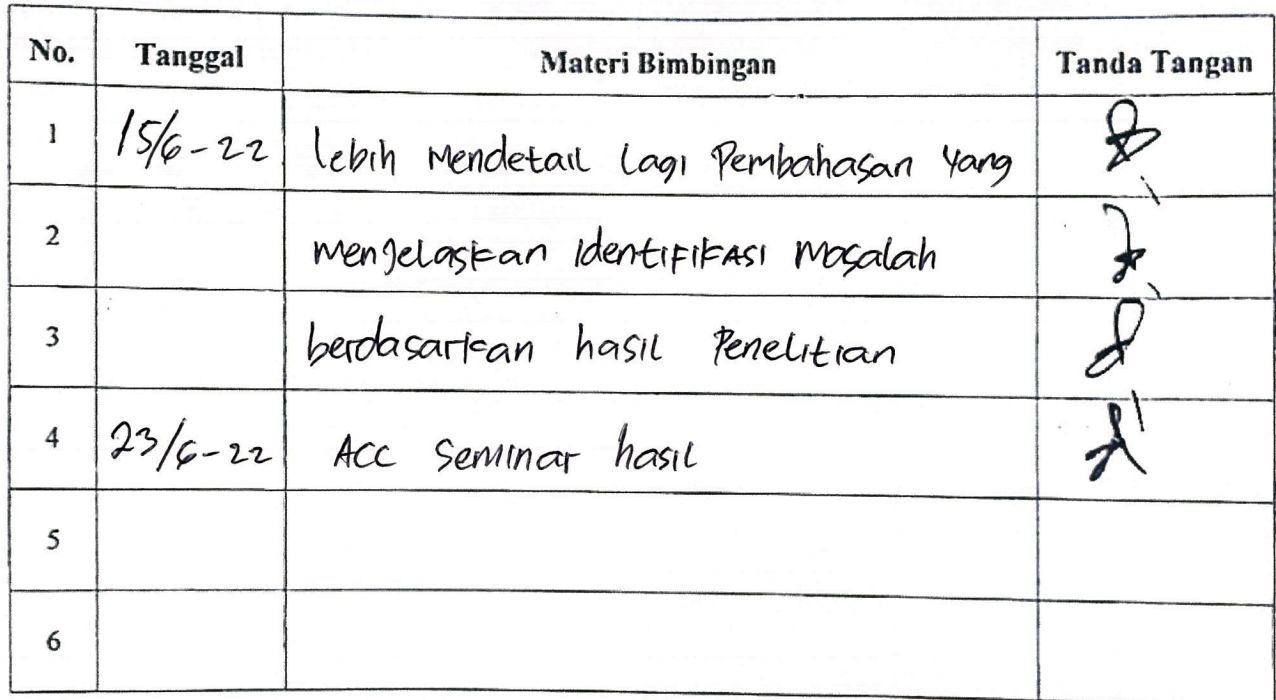 No. Tanggal Materi Bimbingan Tanda Tangan
1 15/6-22 lebih mendetail lagi Pembahasan yang
2 menjelaskan identifikasi masalah
3 berdasarkan hasil Penelitian
4 23/6-22 ACC Seminar hasil
5
6